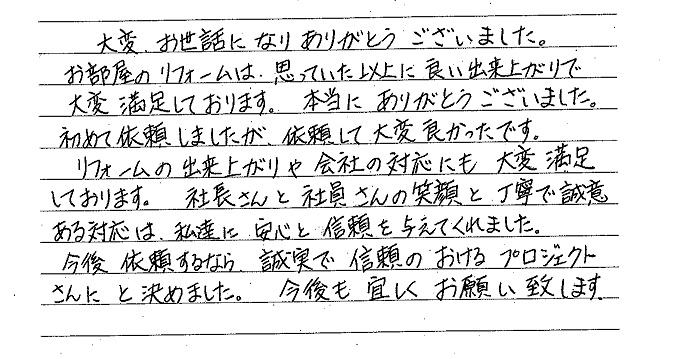 大変、お世話になりありがとうございました。
お部屋のリフォームは、思っていた以上に良い出来上がりで
大変満足しております。本当にありがとうございました。
初めて依頼しましたが、依頼して大変良かったです。
リフォームの出来上がりや会社の対応にも大変満足
しております。社長さんと社員さんの笑顔と丁寧で誠意
ある対応は、私達に安心と信頼を与えてくれました。
今後依頼するなら、誠実で信頼のおけるプロジェクト
さんにと決めました。今後も宜しくお願い致します。